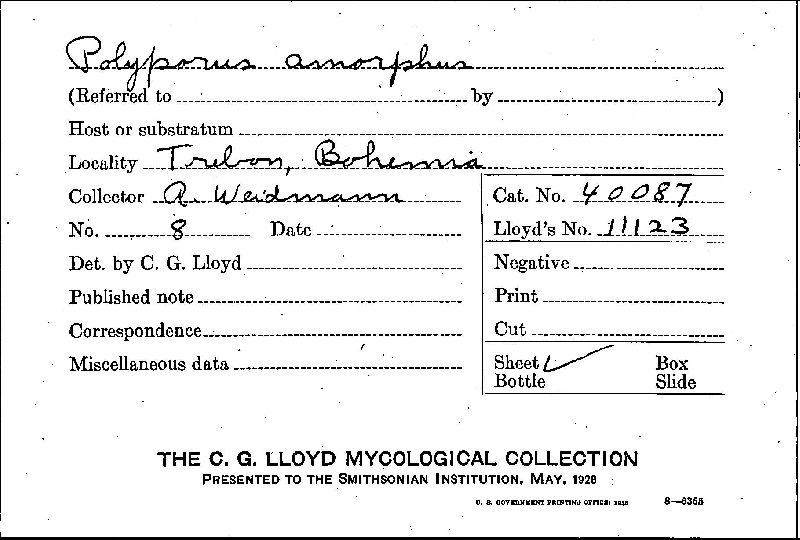 Polyporus amorphus
(Referred to by )
Host or substratum
Locality Trebon, Bohemia
Collector A. Weidmann
Cat. No. 40087
No. 8 Date
Lloyd's No. 11123
Det. by C. G. Lloyd
Negative
Published note
Print
Correspondence
Cut
Miscellaneous data
Sheet Box
Bottle Slide
THE C. G. LLOYD MYCOLOGICAL COLLECTION
PRESENTED TO THE SMITHSONIAN INSTITUTION, MAY, 1928
U. S. GOVERNMENT PRINTING OFFICE: 1928 8—6355